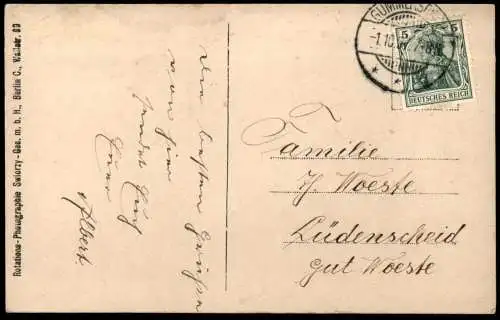 Rotations-Photographie Swiorzy-Ges. m. b. H., Berlin C., Wallstr. 89
Die besten Grüße
von hier
sendet Euch
Euer
Albert
GUMMERSBACH
-1.10.
5 5
DEUTSCHES REICH
Familie
Woeste
Lüdenscheid
Gut Woeste